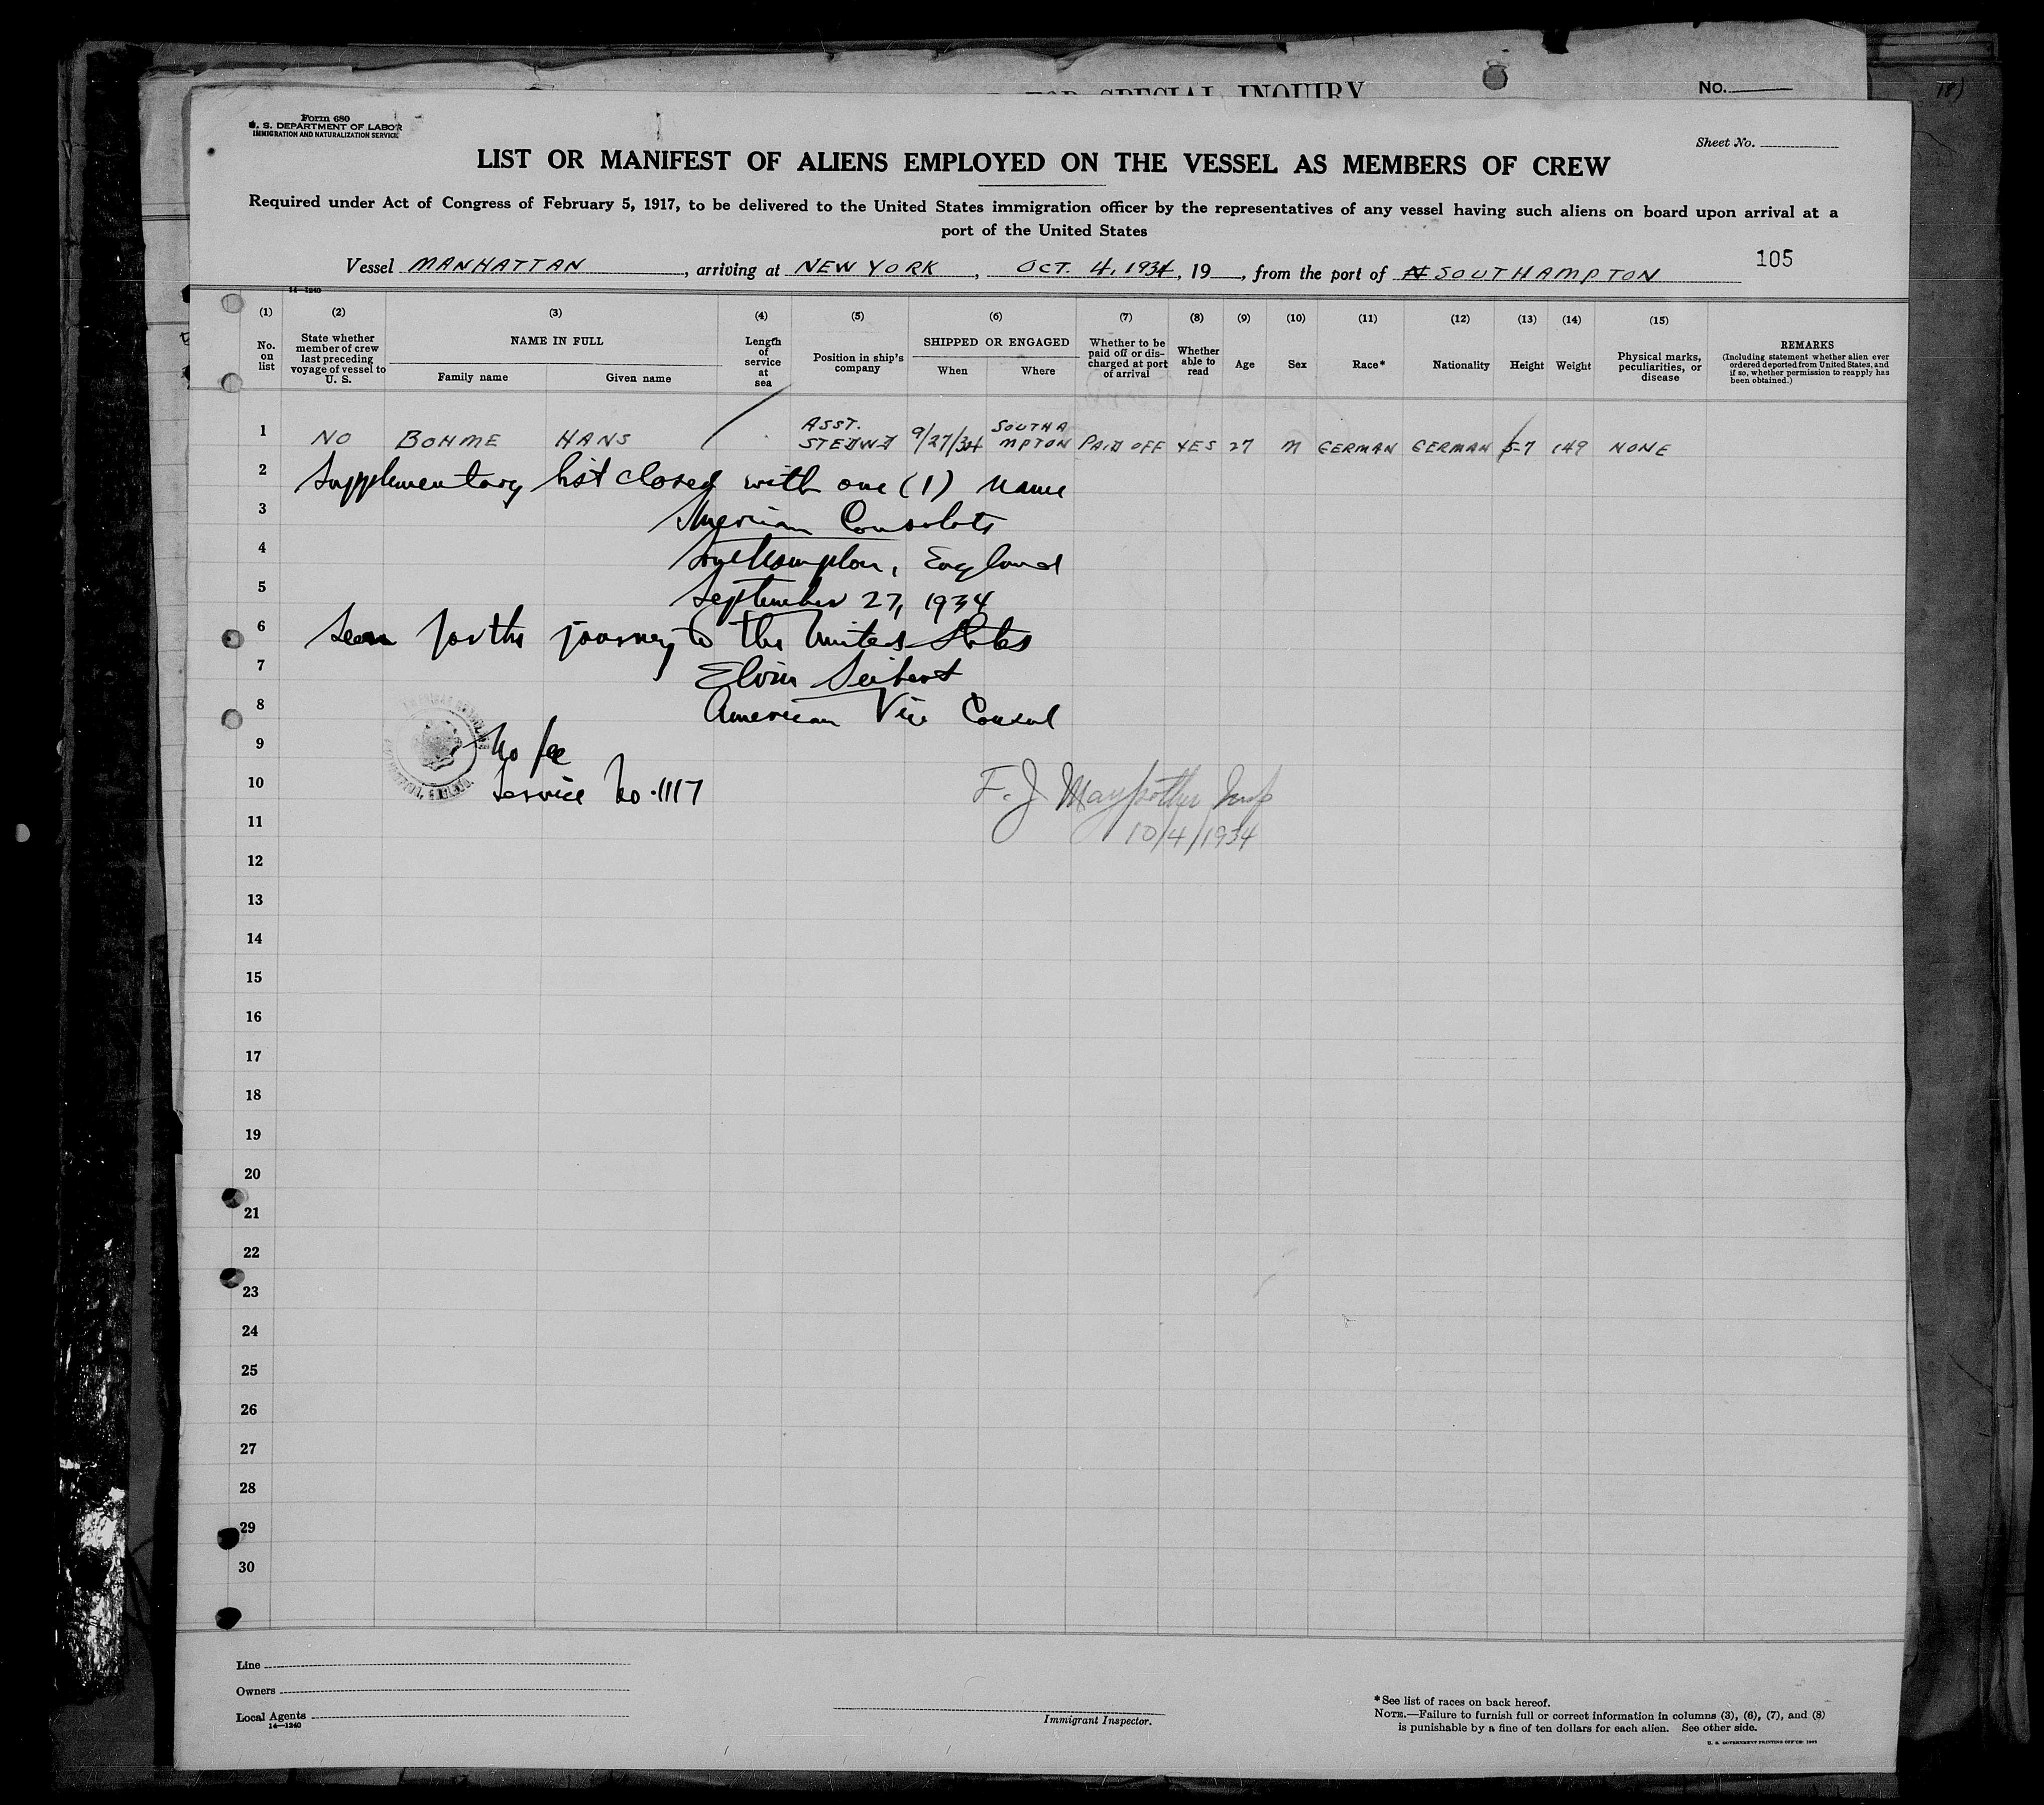 FOR SPECIAL INQUIRY
No.
Form 680
U. S. DEPARTMENT OF LABOR
IMMIGRATION AND NATURALIZATION SERVICE
Sheet No.
LIST OR MANIFEST OF ALIENS EMPLOYED ON THE VESSEL AS MEMBERS OF CREW
Required under Act of Congress of February 5, 1917, to be delivered to the United States immigration officer by the representatives of any vessel having such aliens on board upon arrival at a
port of the United States
105
Vessel MANHATTAN, arriving at NEW YORK, OCT. 4, 1934, 19 , from the port of SOUTHAMPTON
14—1240
(1) (2) (3) (4) (5) (6) (7) (8) (9) (10) (11) (12) (13) (14) (15)
No. on list
State whether member of crew last preceding voyage of vessel to U. S.
NAME IN FULL
Family name
Given name
Length of service at sea
Position in ship's company
SHIPPED OR ENGAGED
When
Where
Whether to be paid off or discharged at port of arrival
Whether able to read
Age
Sex
Race*
Nationality
Height
Weight
Physical marks, peculiarities, or disease
REMARKS
(Including statement whether alien ever ordered deported from United States, and if so, whether permission to reapply has been obtained.)
1 NO BOHME HANS ASST. 9/27/34 SOUTHAMPTON PAID OFF YES 27 M GERMAN GERMAN 5-7 149 NONE
2 Supplementary list closed with one (1) name
3 American Consulate
4 Southampton, England
5 September 27, 1934
6 Seen for the journey to the United States
7 Elvin Seibert
8 American Vice Consul
9 No fee
10 Service No. 1117
F. J. Insp
11 10/4/1934
12
13
14
15
16
17
18
19
20
21
22
23
24
25
26
27
28
29
30
Line
Owners
Local Agents
14—1240
Immigrant Inspector.
*See list of races on back hereof.
NOTE.—Failure to furnish full or correct information in columns (3), (6), (7), and (8)
is punishable by a fine of ten dollars for each alien. See other side.